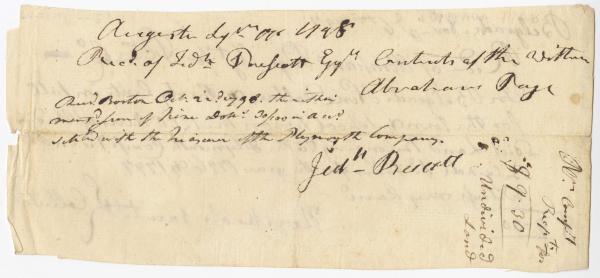 Augusta 1798
Recd. of Jedh Prescott Esqr Contents of the Within
Abraham Page
Recd Boston Octr 1798 the within
mention'd sum of Nine Dolrs 30/100 in acct
settled with the Treasurer of the Plymouth Company.
Jedh Prescott
Recpts for
$9.30
Undivided
Land